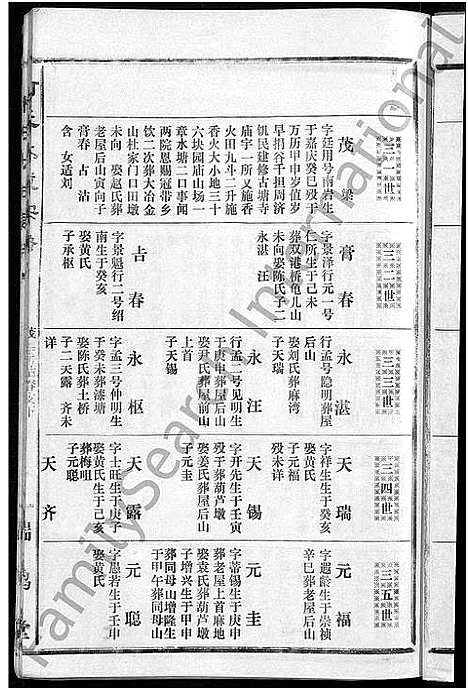 三一世
茂 梁
字廷用号南岩生
于嘉庆癸巳殁于
万历甲申岁值岁
早捐谷千担周济
饥民建修古塘寺
庙宇一所又施香
火田九斗二升施
香火大小地三十
六块园庙山场一
章水塘二口事闻
两院恩赐冠带乡
饮二次葬大冶金
山杜家门口田墩
未向 娶赵氏葬
老屋后山寅向子
膏春 占沾
含 女适刘
三二世
膏 春
字景泽行元一号
仁所生于己未
葬双港桥龟儿山
未向娶陈氏子二
永湛 汪
占 春
字景魁行二号绍
南生于癸亥
娶黄氏
子承枢
三三世
永 湛
行孟号隐明葬屋
后山
娶刘氏葬麻湾
子天瑞
永 汪
行孟二号见明生
于庚申葬屋后山
娶尹氏葬屋前山
上首
子天锡
永 枢
字孟三号仲明生
于癸未葬漆塘
娶陈氏葬土桥
子二天露 齐未
详
三四世
天 瑞
字祥生生于癸亥
娶黄氏
子元福
殁未详
天 锡
字开先生于壬寅
殁于葬葫芦墩
娶姜氏葬屋后山
子元圭
天 露
字士旺生于庚子
娶黄氏生于己亥
葬梅咀
子元聪
天 齐
三五世
元 福
字遐龄生于崇祯
辛巳葬老屋后山
元 圭
字蒂锡生于庚申
葬老屋上首麻地
娶袁氏葬葫芦墩
子增兴生于甲申
葬同母山增隆生
于甲午葬同母山
元 聪
字愚若生于壬申
娶黄氏
FamilySearch International